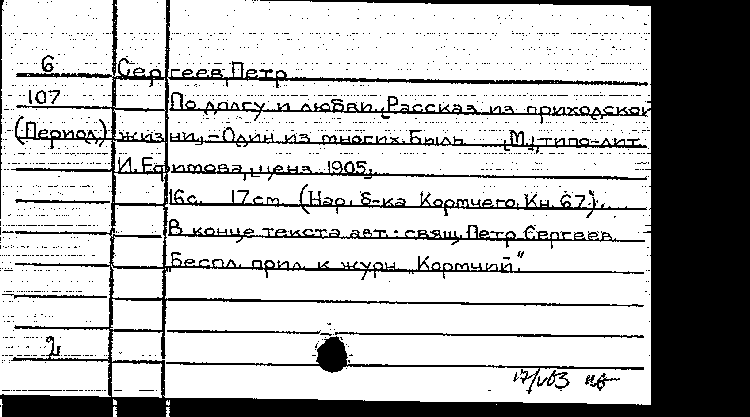 6 Сергеев, Петр
107 По долгу и любви. Рассказ из приходской
(Период) жизни. - Один из многих. Быль. [М.], типо-лит.
И. Ефимова, ценз. 1905.
16с. 17см. (Нар. б-ка Кормчего. Кн. 67).
В конце текста авт.: свящ. Петр Сергеев.
Беспл. прил. к журн. „Кормчий."
2